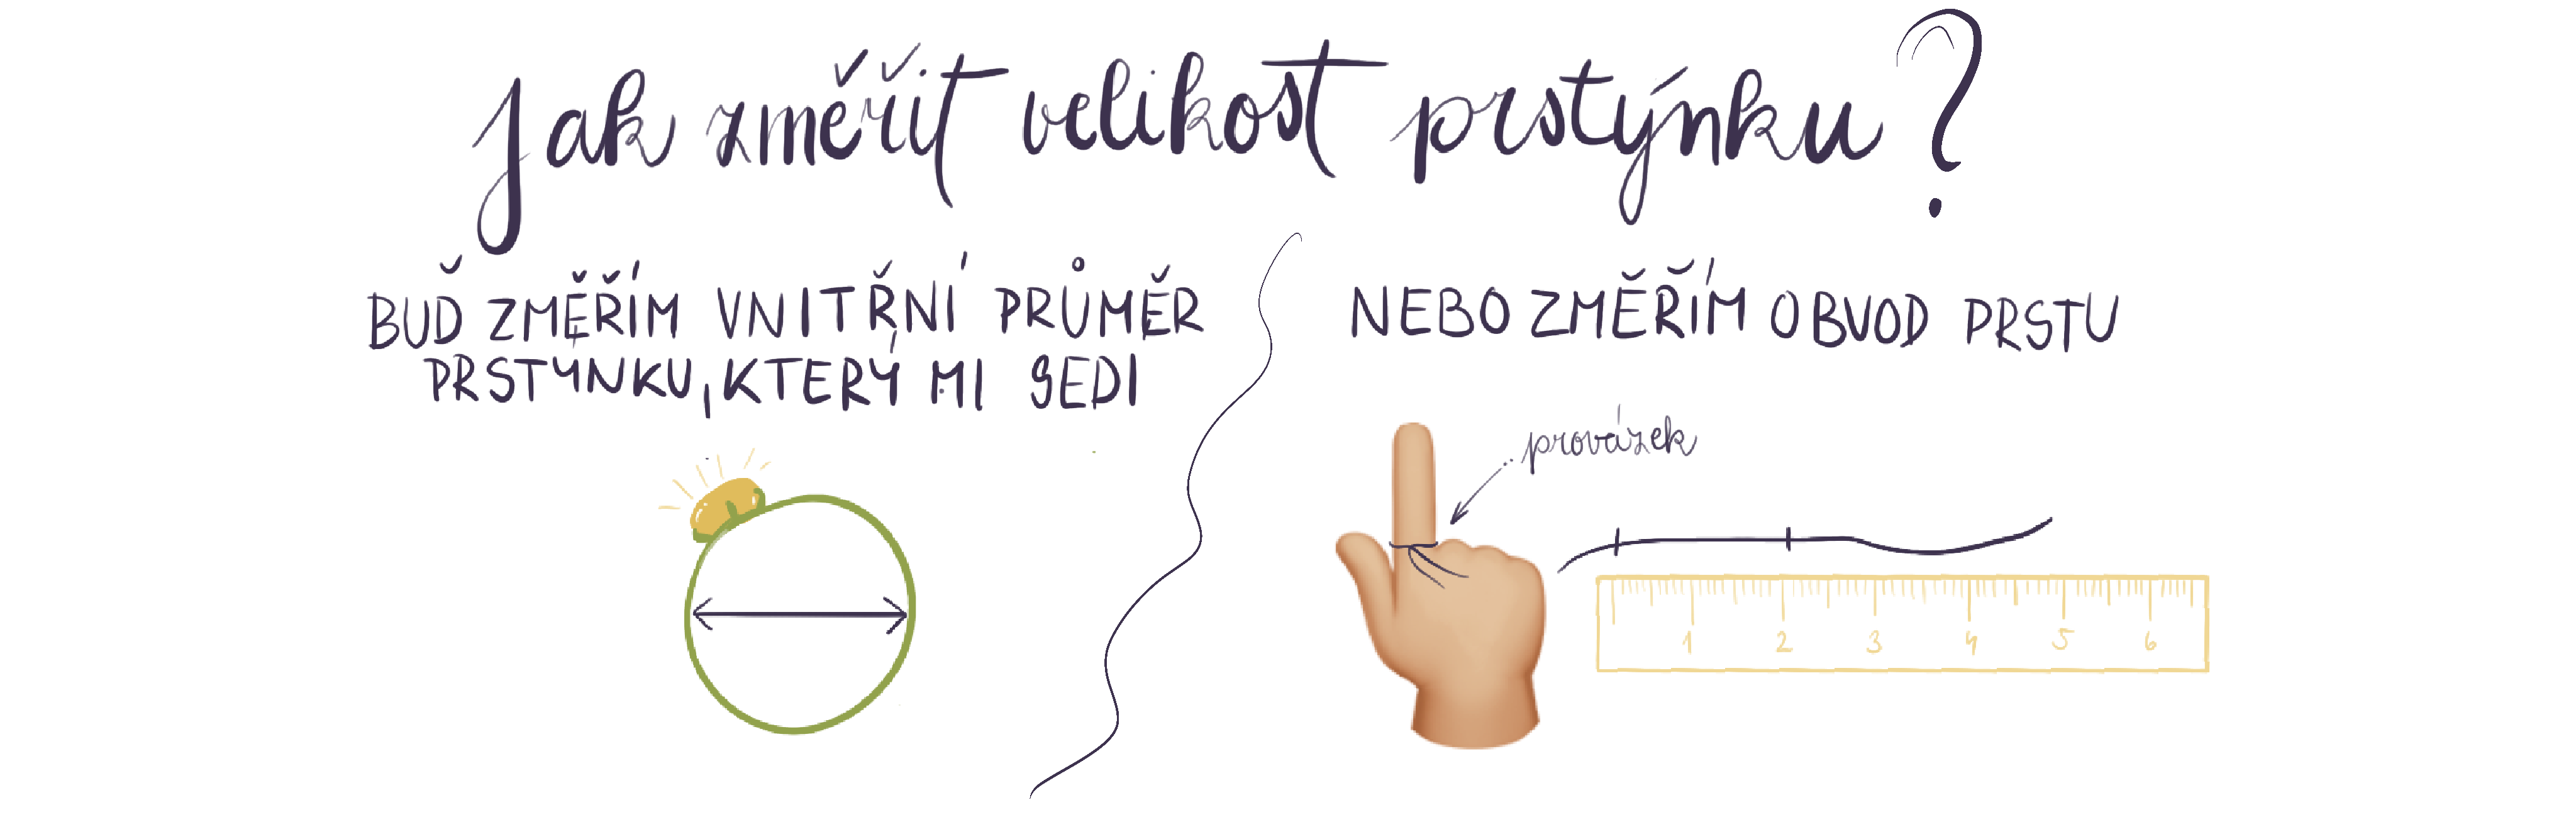 Jak změřit velikost prstýnku?
BUĎ ZMĚŘÍM VNITŘNÍ PRŮMĚR
PRSTÝNKU, KTERÝ MI SEDI
NEBO ZMĚŘÍM OBVOD PRSTU
provázek
1 2 3 4 5 6